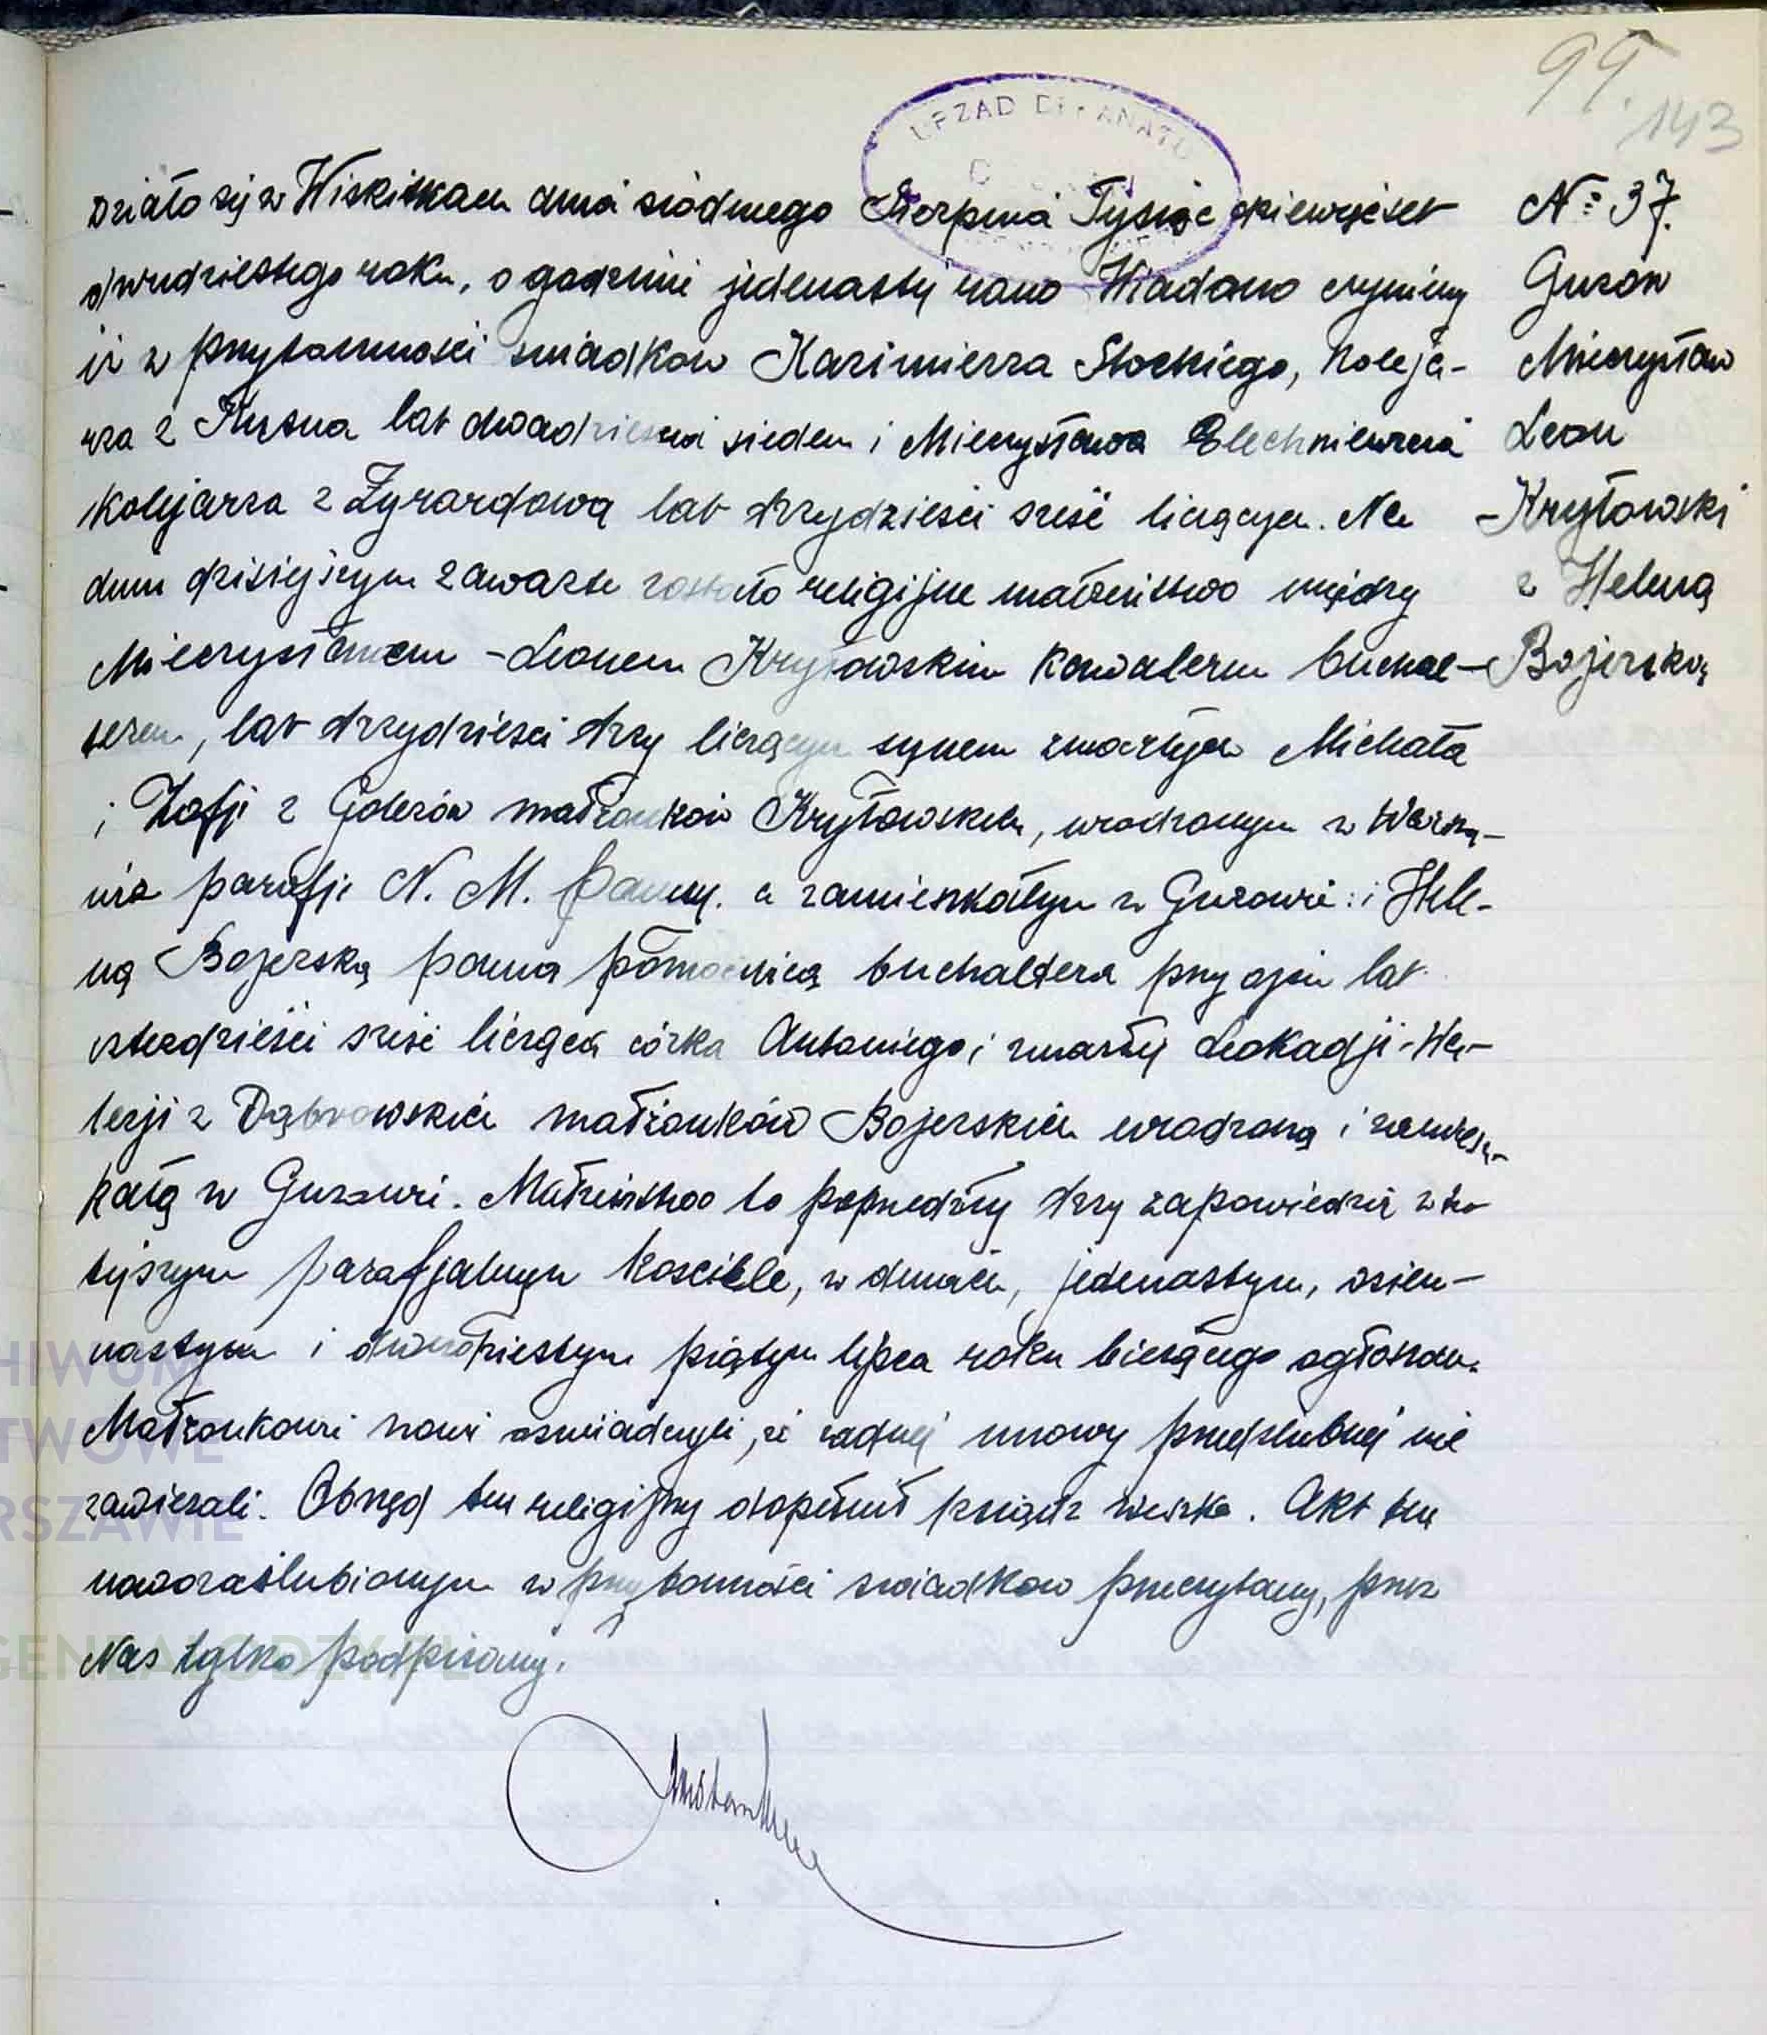 99.
143
URZĄD DZIEKANATU
Działo się w Wiskitkach dnia siódmego Sierpnia Tysiąc dziewięćset
dwudziestego roku, o godzinie jedenastej rano Wiadomo czynimy
iż w przytomności świadków Kazimierza Słockiego, Koleja-
rza z Kutna lat dwadzieścia siedem i Mieczysława
Kolejarza z Żyrardowa lat trzydzieści sześć liczących. Na
dniu dzisiejszym zawarte zostało religijne małżeństwo między
Mieczysławem - Leonem Kryłowskim Kawalerem buchal-
terem, lat trzydzieści trzy liczącym synem zmarłych Michała
i Zofji z małżonków Kryłowskich, urodzonym w Warsza-
wie parafji N. M. Panny. a zamieszkałym w Guzowie: i Hele-
ną Bojerską panną pomocnicą buchaltera przy ojcu lat
czterdzieści sześć liczącą córką Antoniego i zmarłej Leokadji - Wa-
lerji z Dąbrowskich małżonków Bojerskich urodzoną i zamiesz-
kałą w Guzowie. Małżeństwo to poprzedziły trzy zapowiedzie w tu-
tejszym parafjalnym Kościele, w dniach, jedenastym, osiem-
nastym i dwudziestym piątym lipca roku bieżącego ogłoszone.
Małżonkowie nowi oświadczyli, że żadnej umowy przedślubnej nie
zawierali. Obrzęd ten religijny dopełnił ksiądz. Akt ten
nowozaślubionym w przytomności świadków przeczytany, przez
Nas tylko podpisany.
№ 37.
Guzów
Mieczysław
Leon
Kryłowski
z Heleną
Bojerską